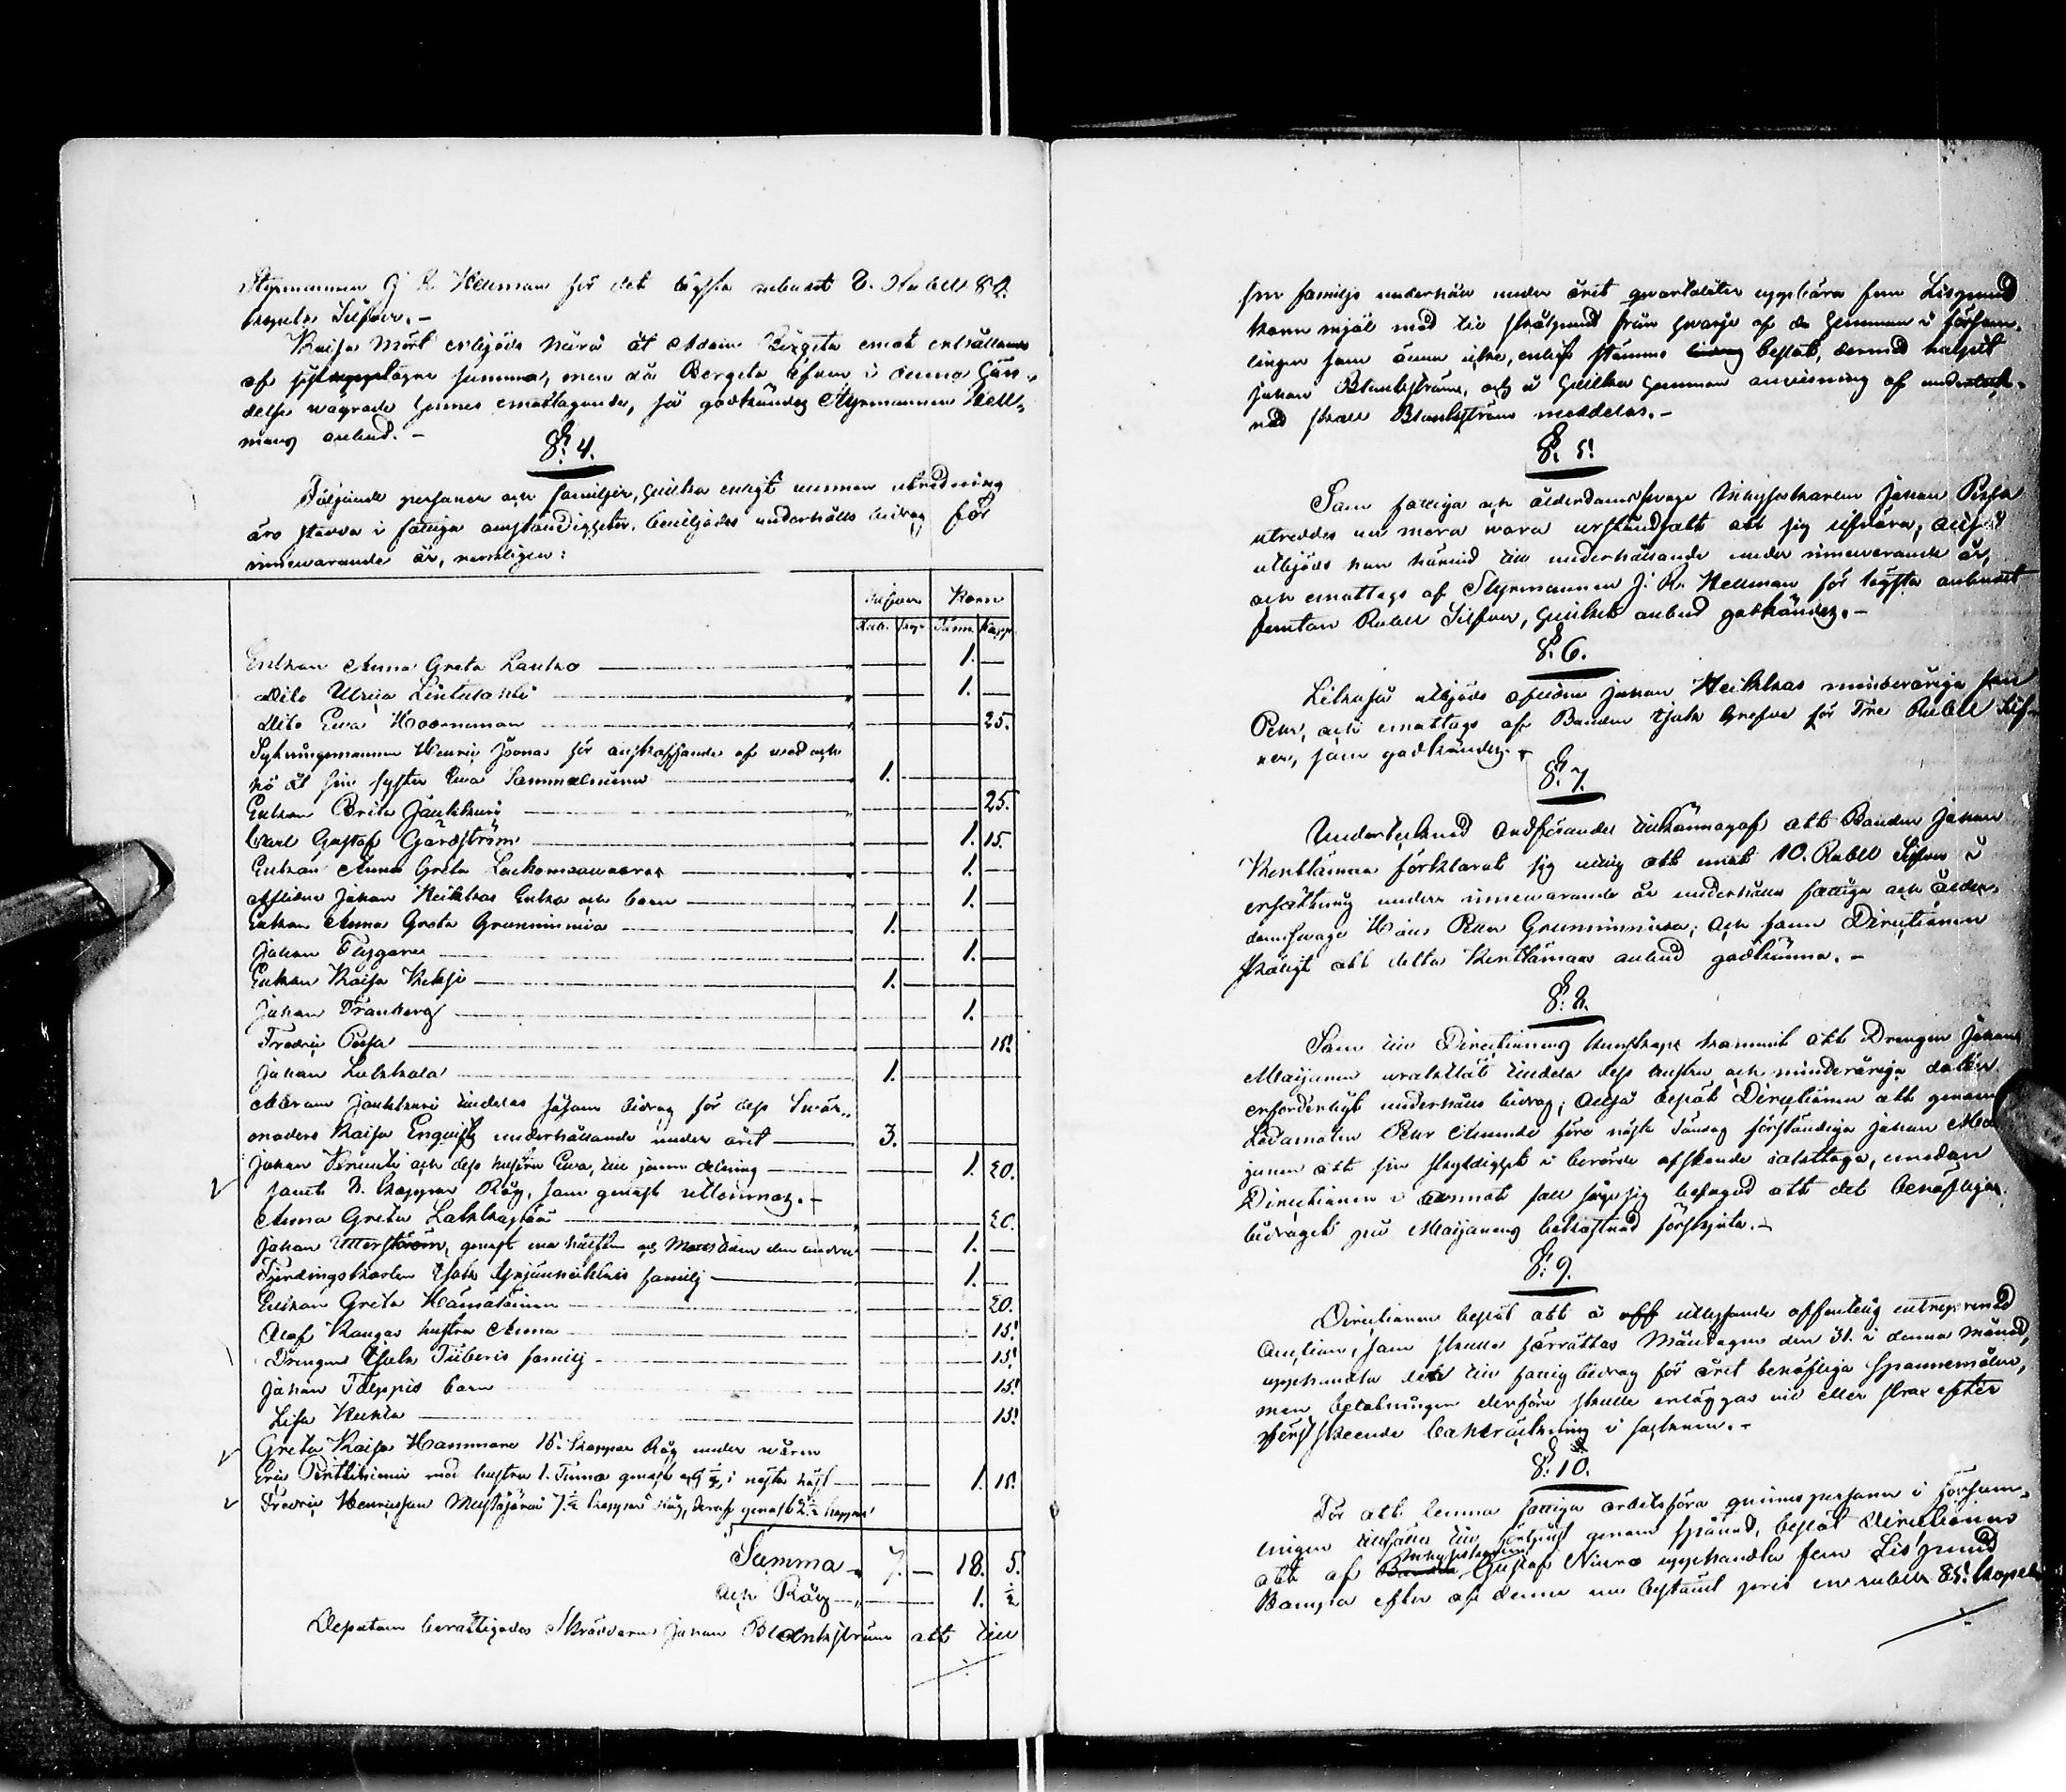 Styrmannen J R. Hellman för det lägsta anbudet 8. Rubell 80.
kopek Silfver. –
Kaisa Mört utbjöds härå åt Adam Bergeta emot erhållande
af sistupptagne summa, men då Bergeta äfven i denna hän-
delse wägrade hennes emottagande, så godkändes Styrmannen Hell-
mans anbud. –
§. 4.
Följande personer och familjer, hvilka enligt numera utredning
äro stadda i fattiga omständigheter, beviljades underhålls bidrag för
innevarande år, nemligen:
Silfver Korn
Rub. Kop. Tunn. Kapp.
Enkan Anna Greta Lautko 1. –
Dito Ulrica Lintulahti 1. –
Dito Ewa Hoornman 25.
Sytningsmannen Henric Joonas för anskaffande af wed och
hö åt sin syster Ewa Sammalniemi 1.
Enkan Brita Jaukkuri 25.
Carl Gustaf Gårdström 1. 15.
Enkan Anna Greta 1. –
Aflidne Johan Heikkas Enka och barn 1. –
Enkan Anna Greta Grunniniemi 1.
Johan Flygare 1. –
Enkan Kaisa Keksi 1.
Johan Franberg 1.
Fredric Pessa 15.
Johan Lukkala 1.
Abram Jaukkuri tilldelas såsom bidrag för dess Swär-
moders Kaisa Enquist underhållande under året 3.
Johan och dess hustru Ewa, till jemn delning 1. 20.
samt 8. kappar Råg, som genast utlemnas. –
Anna Greta 20.
Johan Utterström, genast ena hälften och den andra 1. –
Fjerdingskarlen Isak familj 1. –
Enkan Greta Hämäläinen 20.
Olof Kangas hustru Anna 15.
Drengen Isak Tiiberis familj 15.
Johan Talppis barn 15.
Lisa Kukka 15.
Greta Kaisa Hannmare 15. kappar Råg under wåren
Eric Perttiniemi med hustru 1. Tunna genast och ½ i nästa höst 1. 15.
Fredric Henricsson Mustajärvi 7.½ kappar Råg, deraf genast 2.½ kappar
Summa 7. – 18. 5.
och Råg 1. ½
Desutom berättigades Skräddaren Johan Blankström att till
sin familjs underhåll under året qvartaliter uppbära fem Lispund
korn mjöl med tio skålpund från hwarje af de hemman i försam-
lingen som ännu icke, enligt stämmo beslut, dermed hulpit
Johan Blankström, och å hwilka hemman anwisning af underteck-
nad skall Blankström meddelas. –
§. 5.
Som fattiga och ålderdomsswage Inhyseskarlen Johan Pessa
utreddes nu mera wara urståndsatt att sig lifnära, altså
utbjöds han härmed till underhållande under innewarande år,
och emottogs af Styrmannen J. R. Hellman för lägsta anbudet
femton Rubel Silfver, hwilket anbud godkändes. –
§. 6.
Likaså utbjöds aflidne Johan Heikkas minderåriga son
Petter, och emottogs af Bonden Isak Grefve för Tre Rubel Silf-
ver, som godkändes. –
§. 7.
Undertecknad Ordförande tillkännagaf att Bonden Johan
Kenttämaa förklarat sig willig att emot 10. Rubel Silfver i
ersättning under innewarande år underhålla fattiga och ålder-
domswage Hans Petter Grunniniemi; Och fann Directionen
skäligt att detta Kenttämaas anbud godkänna. –
§. 8.
Som till Directionens kunskap kommit att Drengen Johan
Maijanen uraktlåtit tilldela dess hustru och minderåriga dotter
erforderligt underhålls bidrag; Altså beslöt Directionen att genom
Lådamakare Petter före nästa Söndag förständiga Johan Mai-
janen att sin skyldighet i berörde afseende iakttaga, emedan
Directionen i annat fall såge sig befogad att det behöfliga
bidraget på Maijanens bekostnad förskjuta. –
§. 9.
Directionen beslöt att å utlysande offentlig entreprenad
Auction, som skulle förrättas Måndagen den 31. i denna månad,
upphandla det till fattig bidrag för året behöfliga Spannemålen,
men betalningen derföre skulle erläggas wid eller strax efter
först skeende bakräkning i socknen. –
§. 10.
För att lemna fattiga arbetsföra qvinnspersoner i försam-
lingen tillfälle till förtjenst genom spånad, beslöt Directionen
Inhyseskarlen
att af Gustaf Niura upphandla fem Lispund
Bampa efter af denne nu bestämt pris en rubel 85. kopek